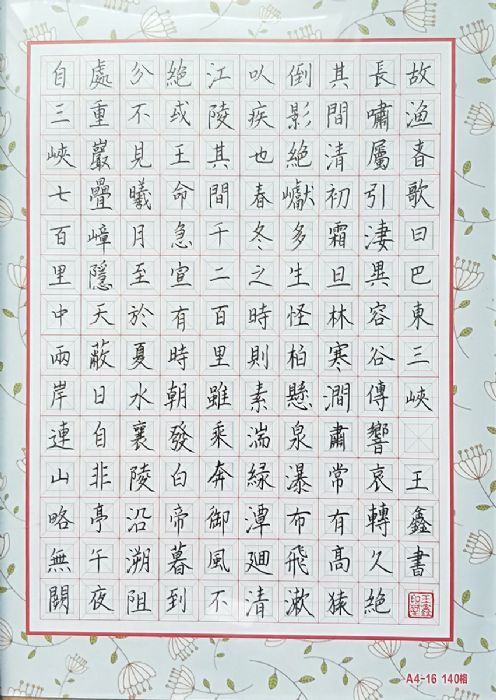 自三峽七百里中兩岸連山略無闕
處重巖疊嶂隱天蔽日自非亭午夜
分不見曦月至於夏水襄陵沿溯阻
絕或王命急宣有時朝發白帝暮到
江陵其間千二百里雖乘奔御風不
以疾也春冬之時則素湍緑潭廻清
倒影絕巘多生怪柏懸泉瀑布飛漱
其間清初霜旦林寒澗肅常有高猿
長嘯屬引淒異容谷傳響哀轉久絕
故漁者歌曰巴東三峽
王鑫書
A4-16 140格